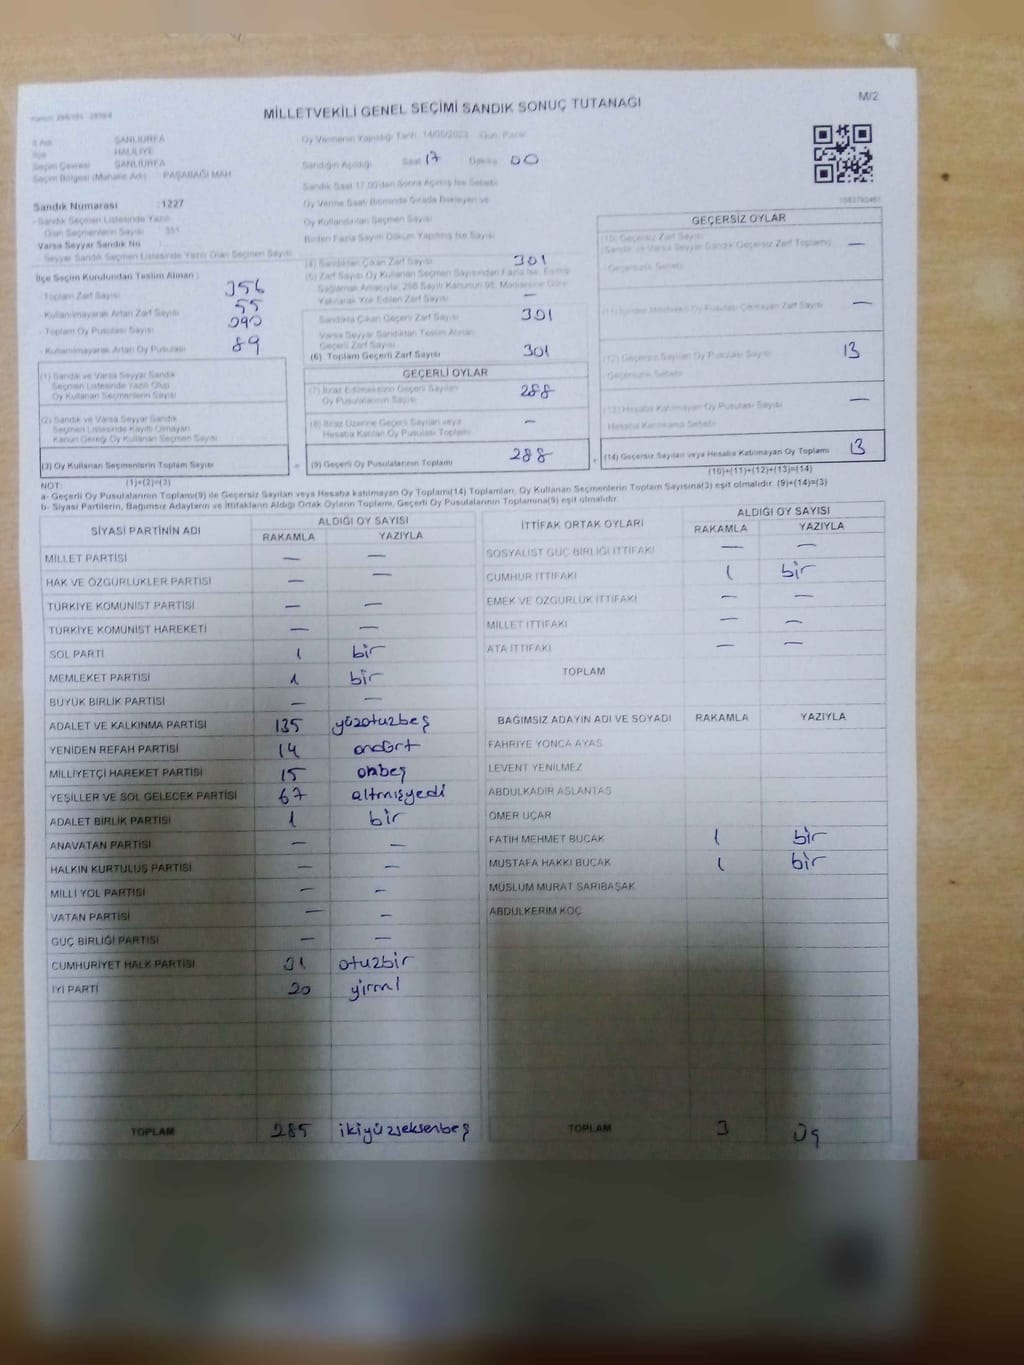 M/2
MİLLETVEKİLİ GENEL SEÇİMİ SANDIK SONUÇ TUTANAĞI
İl Adı ŞANLIURFA
İlçe HALİLİYE
Seçim Çevresi ŞANLIURFA
Seçim Bölgesi (Mahalle Adı) PAŞABAĞI MAH
Sandık Numarası : 1227
- Sandık Seçmen Listesinde Yazılı
Olan Seçmenlerin Sayısı 351
Varsa Seyyar Sandık No
Seyyar Sandık Seçmen Listesinde Yazılı Olan Seçmen Sayısı
İlçe Seçim Kurulundan Teslim Alınan :
- Toplam Zarf Sayısı 356
- Kullanılmayarak Artan Zarf Sayısı 55
- Toplam Oy Pusulası Sayısı
- Kullanılmayarak Artan Oy Pusulası 89
(1) Sandık ve Varsa Seyyar Sandık
Seçmen Listesinde Yazılı Olup
Oy Kullanan Seçmenlerin Sayısı
(2) Sandık ve Varsa Seyyar Sandık
Seçmen Listesinde Kayıtlı Olmayan
Kanun Gereği Oy Kullanan Seçmen Sayısı
(3) Oy Kullanan Seçmenlerin Toplam Sayısı
(1)+(2)=(3)
Oy Vermenin Yapıldığı Tarih: 14/05/2023 Gün: Pazar
Sandığın Açıldığı Saat 17 Dakika 00
Sandık Saat 17.00'den Sonra Açılmış İse Sebebi
Oy Verme Saati Bitiminde Sırada Bekleyen ve
Oy Kullandırılan Seçmen Sayısı
Birden Fazla Sayım Döküm Yapılmış İse Sayısı
(4) Sandıktan Çıkan Zarf Sayısı 301
(5) Zarf Sayısı Oy Kullanan Seçmen Sayısından Fazla İse, Eşitliği
Sağlamak Amacıyla, 298 Sayılı Kanunun 98. Maddesine Göre
Yakılarak Yok Edilen Zarf Sayısı —
Sandıkta Çıkan Geçerli Zarf Sayısı 301
Varsa Seyyar Sandıktan Teslim Alınan
Geçerli Zarf Sayısı
(6) Toplam Geçerli Zarf Sayısı 301
GEÇERLİ OYLAR
(7) İtiraz Edilmeksizin Geçerli Sayılan
Oy Pusulalarının Sayısı 288
(8) İtiraz Üzerine Geçerli Sayılan veya
Hesaba Katılan Oy Pusulası Toplamı —
(9) Geçerli Oy Pusulalarının Toplamı 288
GEÇERSİZ OYLAR
(10) Geçersiz Zarf Sayısı —
(Sandık ve Varsa Seyyar Sandık Geçersiz Zarf Toplamı)
- Geçersizlik Sebebi
(11) İçinden Milletvekili Oy Pusulası Çıkmayan Zarf Sayısı —
(12) Geçersiz Sayılan Oy Pusulası Sayısı 13
- Geçersizlik Sebebi
(13) Hesaba Katılmayan Oy Pusulası Sayısı —
Hesaba Katılmama Sebebi
(14) Geçersiz Sayılan veya Hesaba Katılmayan Oy Toplamı 13
(10)+(11)+(12)+(13)=(14)
NOT:
a- Geçerli Oy Pusulalarının Toplamı(9) ile Geçersiz Sayılan veya Hesaba katılmayan Oy Toplamı(14) Toplamları, Oy Kullanan Seçmenlerin Toplam Sayısına(3) eşit olmalıdır. (9)+(14)=(3)
b- Siyasi Partilerin, Bağımsız Adayların ve İttifakların Aldığı Ortak Oyların Toplamı, Geçerli Oy Pusulalarının Toplamına(9) eşit olmalıdır.
SİYASİ PARTİNİN ADI ALDIĞI OY SAYISI
RAKAMLA YAZIYLA
MİLLET PARTİSİ — —
HAK VE ÖZGÜRLÜKLER PARTİSİ — —
TÜRKİYE KOMÜNİST PARTİSİ — —
TÜRKİYE KOMÜNİST HAREKETİ — —
SOL PARTİ 1 bir
MEMLEKET PARTİSİ 1 bir
BÜYÜK BİRLİK PARTİSİ — —
ADALET VE KALKINMA PARTİSİ 135 yüzotuzbeş
YENİDEN REFAH PARTİSİ 14 ondört
MİLLİYETÇİ HAREKET PARTİSİ 15 onbeş
YEŞİLLER VE SOL GELECEK PARTİSİ 67 altmışyedi
ADALET BİRLİK PARTİSİ 1 bir
ANAVATAN PARTİSİ — —
HALKIN KURTULUŞ PARTİSİ — —
MİLLİ YOL PARTİSİ — —
VATAN PARTİSİ — —
GÜÇ BİRLİĞİ PARTİSİ — —
CUMHURİYET HALK PARTİSİ 31 otuzbir
İYİ PARTİ 20 yirmi
TOPLAM 285 ikiyüzseksenbeş
İTTİFAK ORTAK OYLARI ALDIĞI OY SAYISI
RAKAMLA YAZIYLA
SOSYALİST GÜÇ BİRLİĞİ İTTİFAKI — —
CUMHUR İTTİFAKI 1 bir
EMEK VE ÖZGÜRLÜK İTTİFAKI — —
MİLLET İTTİFAKI — —
ATA İTTİFAKI — —
TOPLAM
BAĞIMSIZ ADAYIN ADI VE SOYADI RAKAMLA YAZIYLA
FAHRİYE YONCA AYAS
LEVENT YENİLMEZ
ABDULKADİR ASLANTAŞ
ÖMER UÇAR
FATİH MEHMET BUCAK 1 bir
MUSTAFA HAKKI BUCAK 1 bir
MÜSLÜM MURAT SARIBAŞAK
ABDULKERİM KOÇ
TOPLAM 3 üç